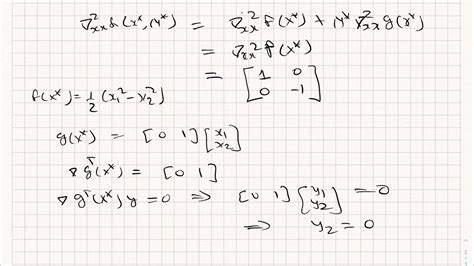 ∇²ₓₓ L(x*, μ*) = ∇²ₓₓ f(x*) + μ* ∇²ₓₓ g(x*)
= ∇²ₓₓ f(x*)
= [1 0; 0 -1]
f(x*) = ½ (x₁² - x₂²)
g(x*) = [0 1] [x₁; x₂]
∇gᵀ(x*) = [0 1]
∇gᵀ(x*) y = 0 ⇒ [0 1] [y₁; y₂] = 0
⇒ y₂ = 0